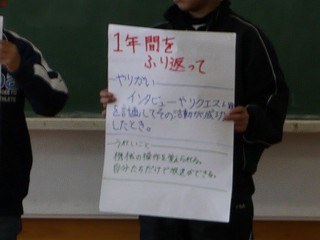 1年間を
ふり返って
やりがい
インタビューやリクエスト等
を計画してその活動が成功
したとき。
うれしいこと
機械の操作を覚えられる。
自分たちだけで放送ができる。